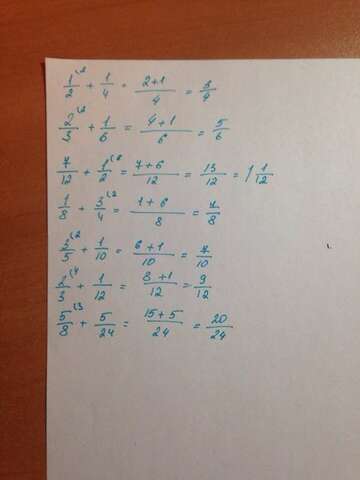 1/2⁽² + 1/4 = 2+1/4 = 3/4
2/3⁽² + 1/6 = 4+1/6 = 5/6
7/12 + 1/2⁽⁶ = 7+6/12 = 13/12 = 1 1/12
1/8 + 3/4⁽² = 1+6/8 = 7/8
3/5⁽² + 1/10 = 6+1/10 = 7/10
2/3⁽⁴ + 1/12 = 8+1/12 = 9/12
5/8⁽³ + 5/24 = 15+5/24 = 20/24